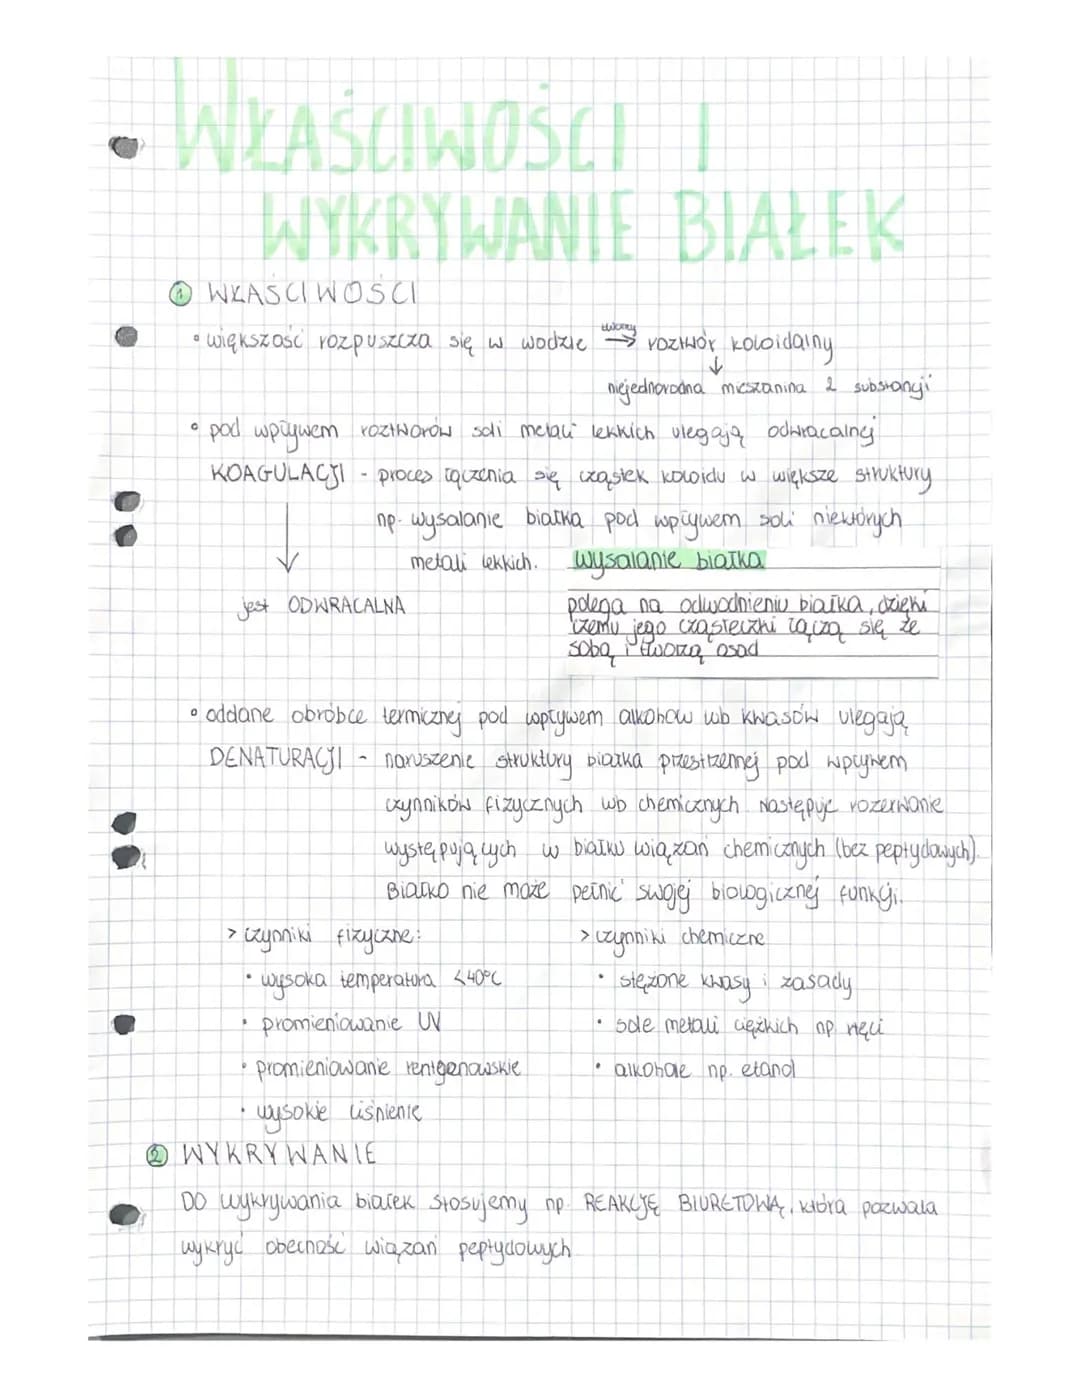 WŁAŚCIWOŚCI I
WYKRYWANIE BIAŁEK
1 WŁAŚCIWOŚCI
• większość rozpuszcza się w wodzie tworzy → roztwór koloidalny
↓
niejednorodna mieszanina 2 substancji
• pod wpływem roztworów soli metali lekkich ulegają odwracalnej
KOAGULACJI - proces łączenia się cząstek koloidu w większe struktury
np. wysalanie białka pod wpływem soli niektórych
metali lekkich.
↓
jest ODWRACALNA
wysalanie białka
polega na odwodnieniu białka, dzięki
czemu jego cząsteczki łączą się ze
sobą i tworzą osad
• oddane obróbce termicznej pod wpływem alkoholu lub kwasów ulegają
DENATURACJI - naruszenie struktury białka przestrzennej pod wpływem
czynników fizycznych lub chemicznych. Następuje rozerwanie
występujących w białku wiązań chemicznych (bez peptydowych).
Białko nie może pełnić swojej biologicznej funkcji.
> czynniki fizyczne:
• wysoka temperatura <40°C
• promieniowanie UV
• promieniowanie rentgenowskie
• wysokie ciśnienie
> czynniki chemiczne
• stężone kwasy i zasady
• sole metali ciężkich np rtęci
• alkohole np. etanol
2 WYKRYWANIE
DO wykrywania białek stosujemy np. REAKCJĘ BIURETOWĄ, która pozwala
wykryć obecność wiązań peptydowych